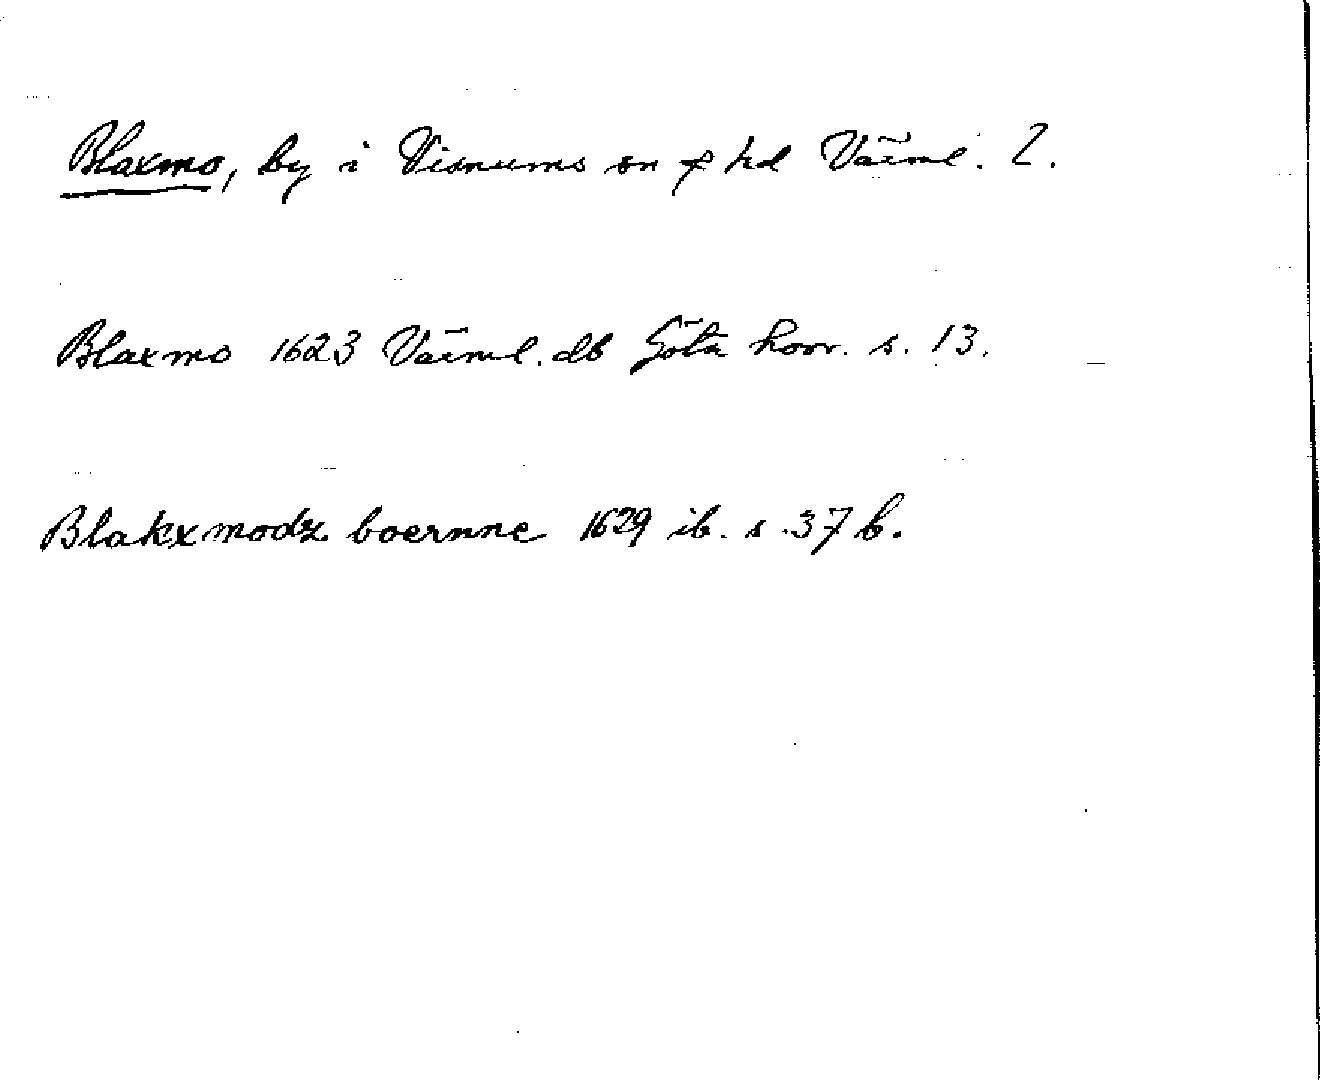 Blaxmo, by i Visnums sn hd Värml. l.
Blaxmo 1623 Värml. db Göta hovr. s. 13.
Blakxmodz boernne 1629 ib. s. 37 b.